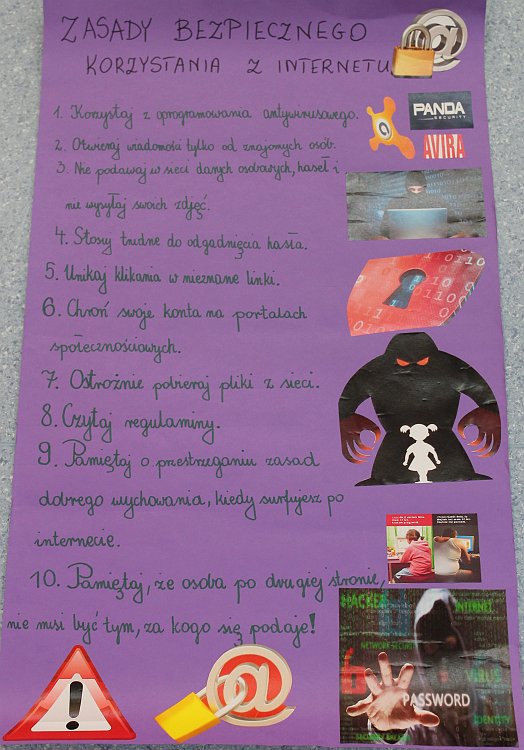 ZASADY BEZPIECZNEGO
KORZYSTANIA Z INTERNETU
1. Korzystaj z oprogramowania antywirusowego.
2. Otwieraj wiadomości tylko od znajomych osób.
3. Nie podawaj w sieci danych osobowych, haseł i
nie wysyłaj swoich zdjęć.
4. Stosuj trudne do odgadnięcia hasła.
5. Unikaj klikania w nieznane linki.
6. Chroń swoje konta na portalach
społecznościowych.
7. Ostrożnie pobieraj pliki z sieci.
8. Czytaj regulaminy.
9. Pamiętaj o przestrzeganiu zasad
dobrego wychowania, kiedy surfujesz po
internecie.
10. Pamiętaj, że osoba po drugiej stronie,
nie misi być tym, za kogo się podaje!
PANDA
SECURITY
AVIRA
HACKER
INTERNET
NETWORK SECURITY
VIRUS
PASSWORD
IDENTITY